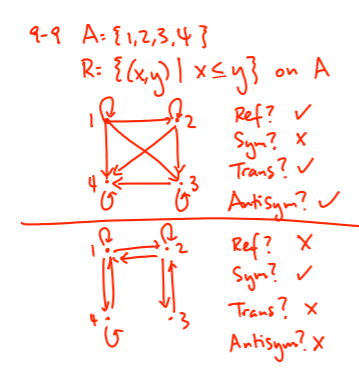 9-9 A = {1,2,3,4}
R: {(x,y) | x ≤ y} on A
1 2
4 3
Ref? ✓
Sym? ✗
Trans? ✓
Antisym? ✓
1 2
4 3
Ref? ✗
Sym? ✓
Trans? ✗
Antisym? ✗